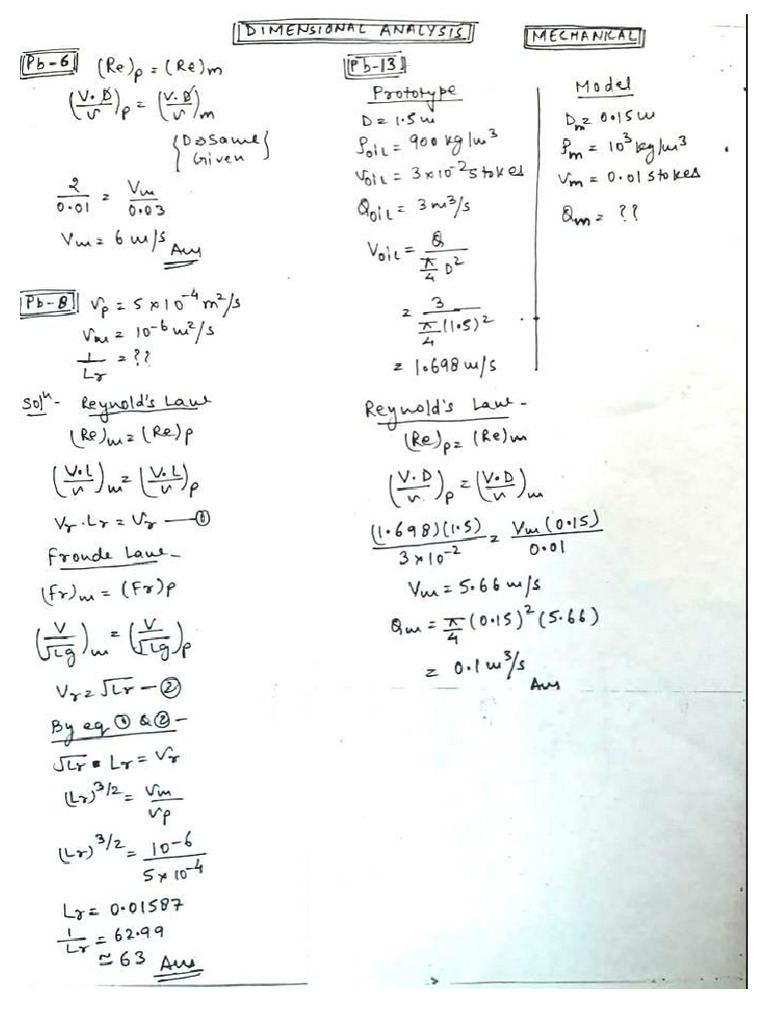 DIMENSIONAL ANALYSIS
MECHANICAL
Pb-6 (Re)p = (Re)m
(V.D/ν)p = (V.D/ν)m
{D⇒Same Given}
2/0.01 = Vm/0.03
Vm = 6 m/s Ans
Pb-8 νp = 5×10⁻⁴ m²/s
νm = 10⁻⁶ m²/s
1/Lr = ??
Solⁿ- Reynold's Law
(Re)m = (Re)p
(V.L/ν)m = (V.L/ν)p
Vr.Lr = νr —①
Froude Law-
(Fr)m = (Fr)p
(V/√Lg)m = (V/√Lg)p
Vr = √Lr —②
By eq ① & ②-
√Lr • Lr = νr
(Lr)^3/2 = νm/νp
(Lr)^3/2 = 10⁻⁶/5×10⁻⁴
Lr = 0.01587
1/Lr = 62.99
≃ 63 Ans
Pb-13
Prototype
D = 1.5m
ρoil = 900 kg/m³
νoil = 3×10⁻² Stokes
Qoil = 3 m³/s
Voil = Q/(π/4 D²)
= 3/(π/4 (1.5)²)
= 1.698 m/s
Model
Dm = 0.15m
ρm = 10³ kg/m³
νm = 0.01 Stokes
Qm = ??
Reynold's Law-
(Re)p = (Re)m
(V.D/ν)p = (V.D/ν)m
(1.698)(1.5)/3×10⁻² = Vm(0.15)/0.01
Vm = 5.66 m/s
Qm = π/4 (0.15)² (5.66)
= 0.1 m³/s
Ans